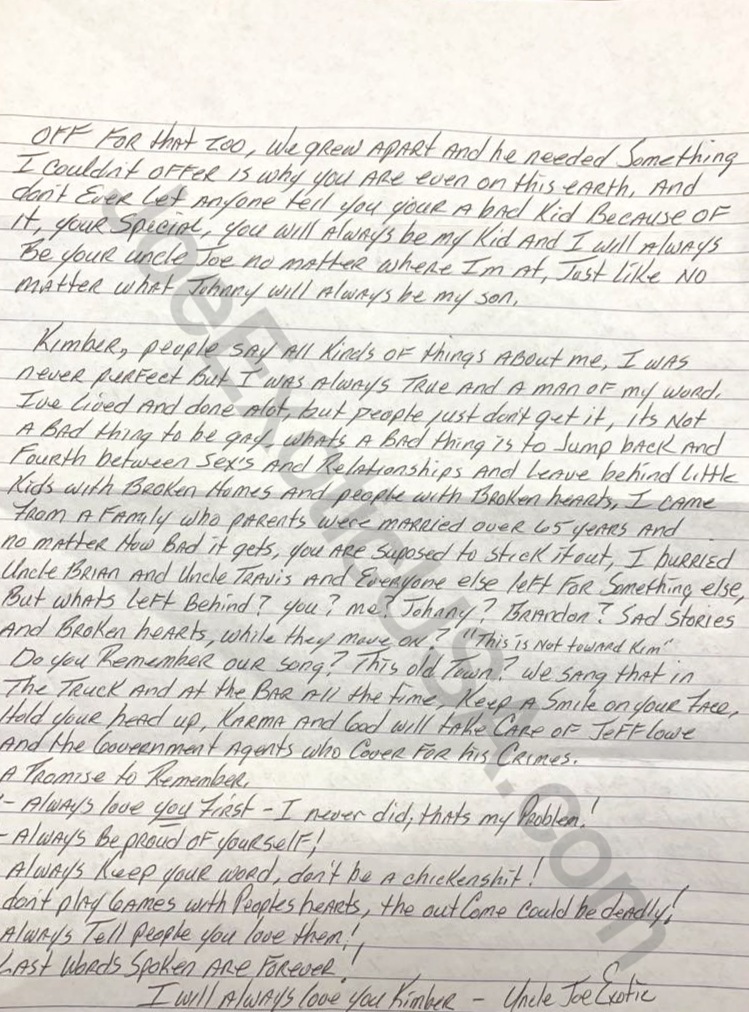 OFF FOR that TOO, WE grew APART AND he needed Something
I couldn't offer is why you ARE even on this earth, AND
don't Ever Let Anyone tell you your A bad Kid Because OF
It, your Special, you will Always be my Kid And I will Always
Be your uncle Joe no matter where Im At, Just like NO
matter what Johnny will Always be my son,
Kimber, people SAY All Kinds OF things About me, I WAS
never perfect But I WAS Always TRUE AND A MAN OF my WORD.
Ive Lived And done Alot, but people just don't get it, its Not
A BAd thing to be gay, whats A BAd thing is to Jump back And
Fourth between Sex's And Relationships And Leave behind Little
Kids with Broken Homes And people with Broken hearts, I CAME
From A Family who PARENTS were MARRIED over 65 years And
no matter How BAd it gets, you Are suposed to stick it out, I burried
Uncle BRIAN And Uncle TRAVIS And Everyone else left For Something else,
But whats left Behind? you? me? Johnny? BRAndon? SAd Stories
And Broken heArts, while they move on? "This is Not toward Kim"
Do you Remember our song? This old Town? we SANg that in
The Truck And At the BAR All the time, Keep A Smile on your Face,
Hold your head up, KARMA And God will take CARE of JeFF lowe
And the Government Agents who Cover For his Crimes.
A Promise to Remember,
- Always love you First - I never did, thats my Problem!
- Always Be proud of yourself!
Always Keep your word, don't be A chickenshit!
don't play Games with Peoples hearts, the outCome could be deadly!
Always Tell people you love them!,
LAST Words Spoken Are Forever!
I will Always love you Kimber - Uncle Joe Exotic
JoeExoticUSA.com